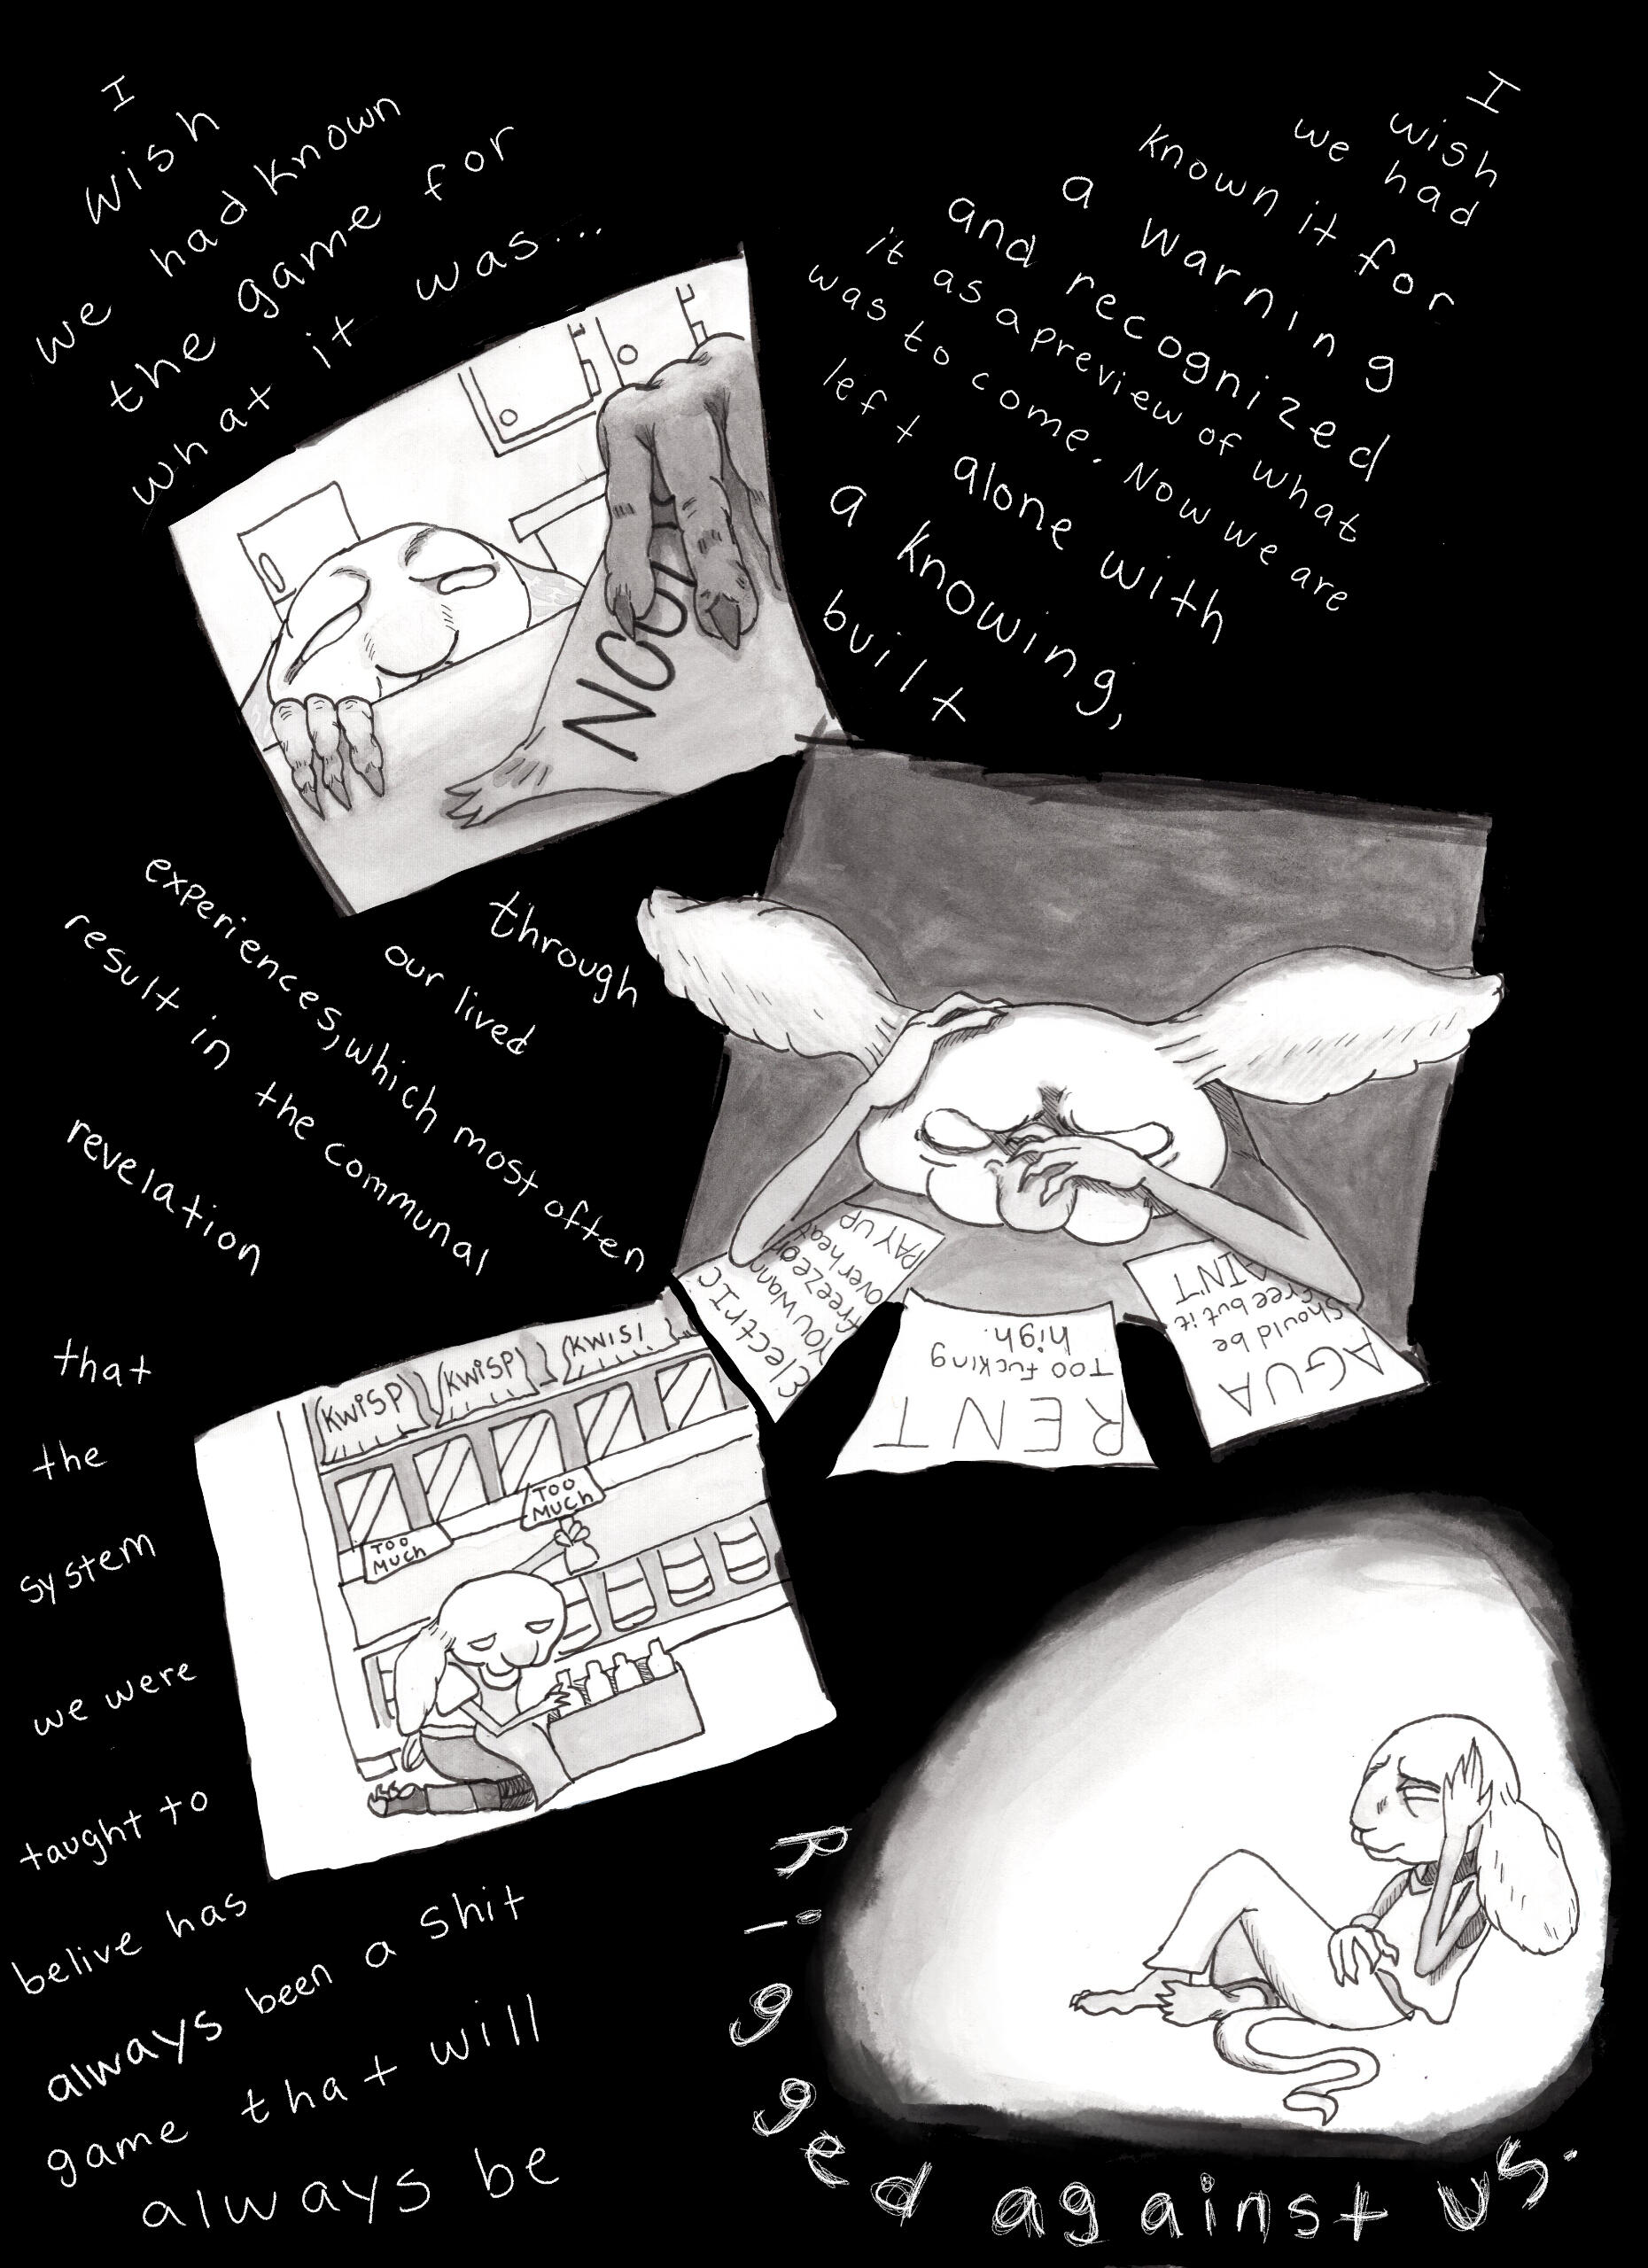 I
wish
we had known
the game for
what it was...
I
wish
we had
known it for
a warning
and recognized
it as a preview of what
was to come. Now we are
left alone with
a knowing,
built
through
our lived
experiences, which most often
result in the communal
revelation
ElectrIc
You wanna
freeze or
over heat
PAY UP
RENT
Too fucking
high.
AGUA
Should be
free but it
AIN'T
KWISP
KWISP
KWISI
TOO
MUCH
TOO
MUCH
that
the
system
we were
taught to
belive has
always been a shit
game that will
always be
Rigged against us.